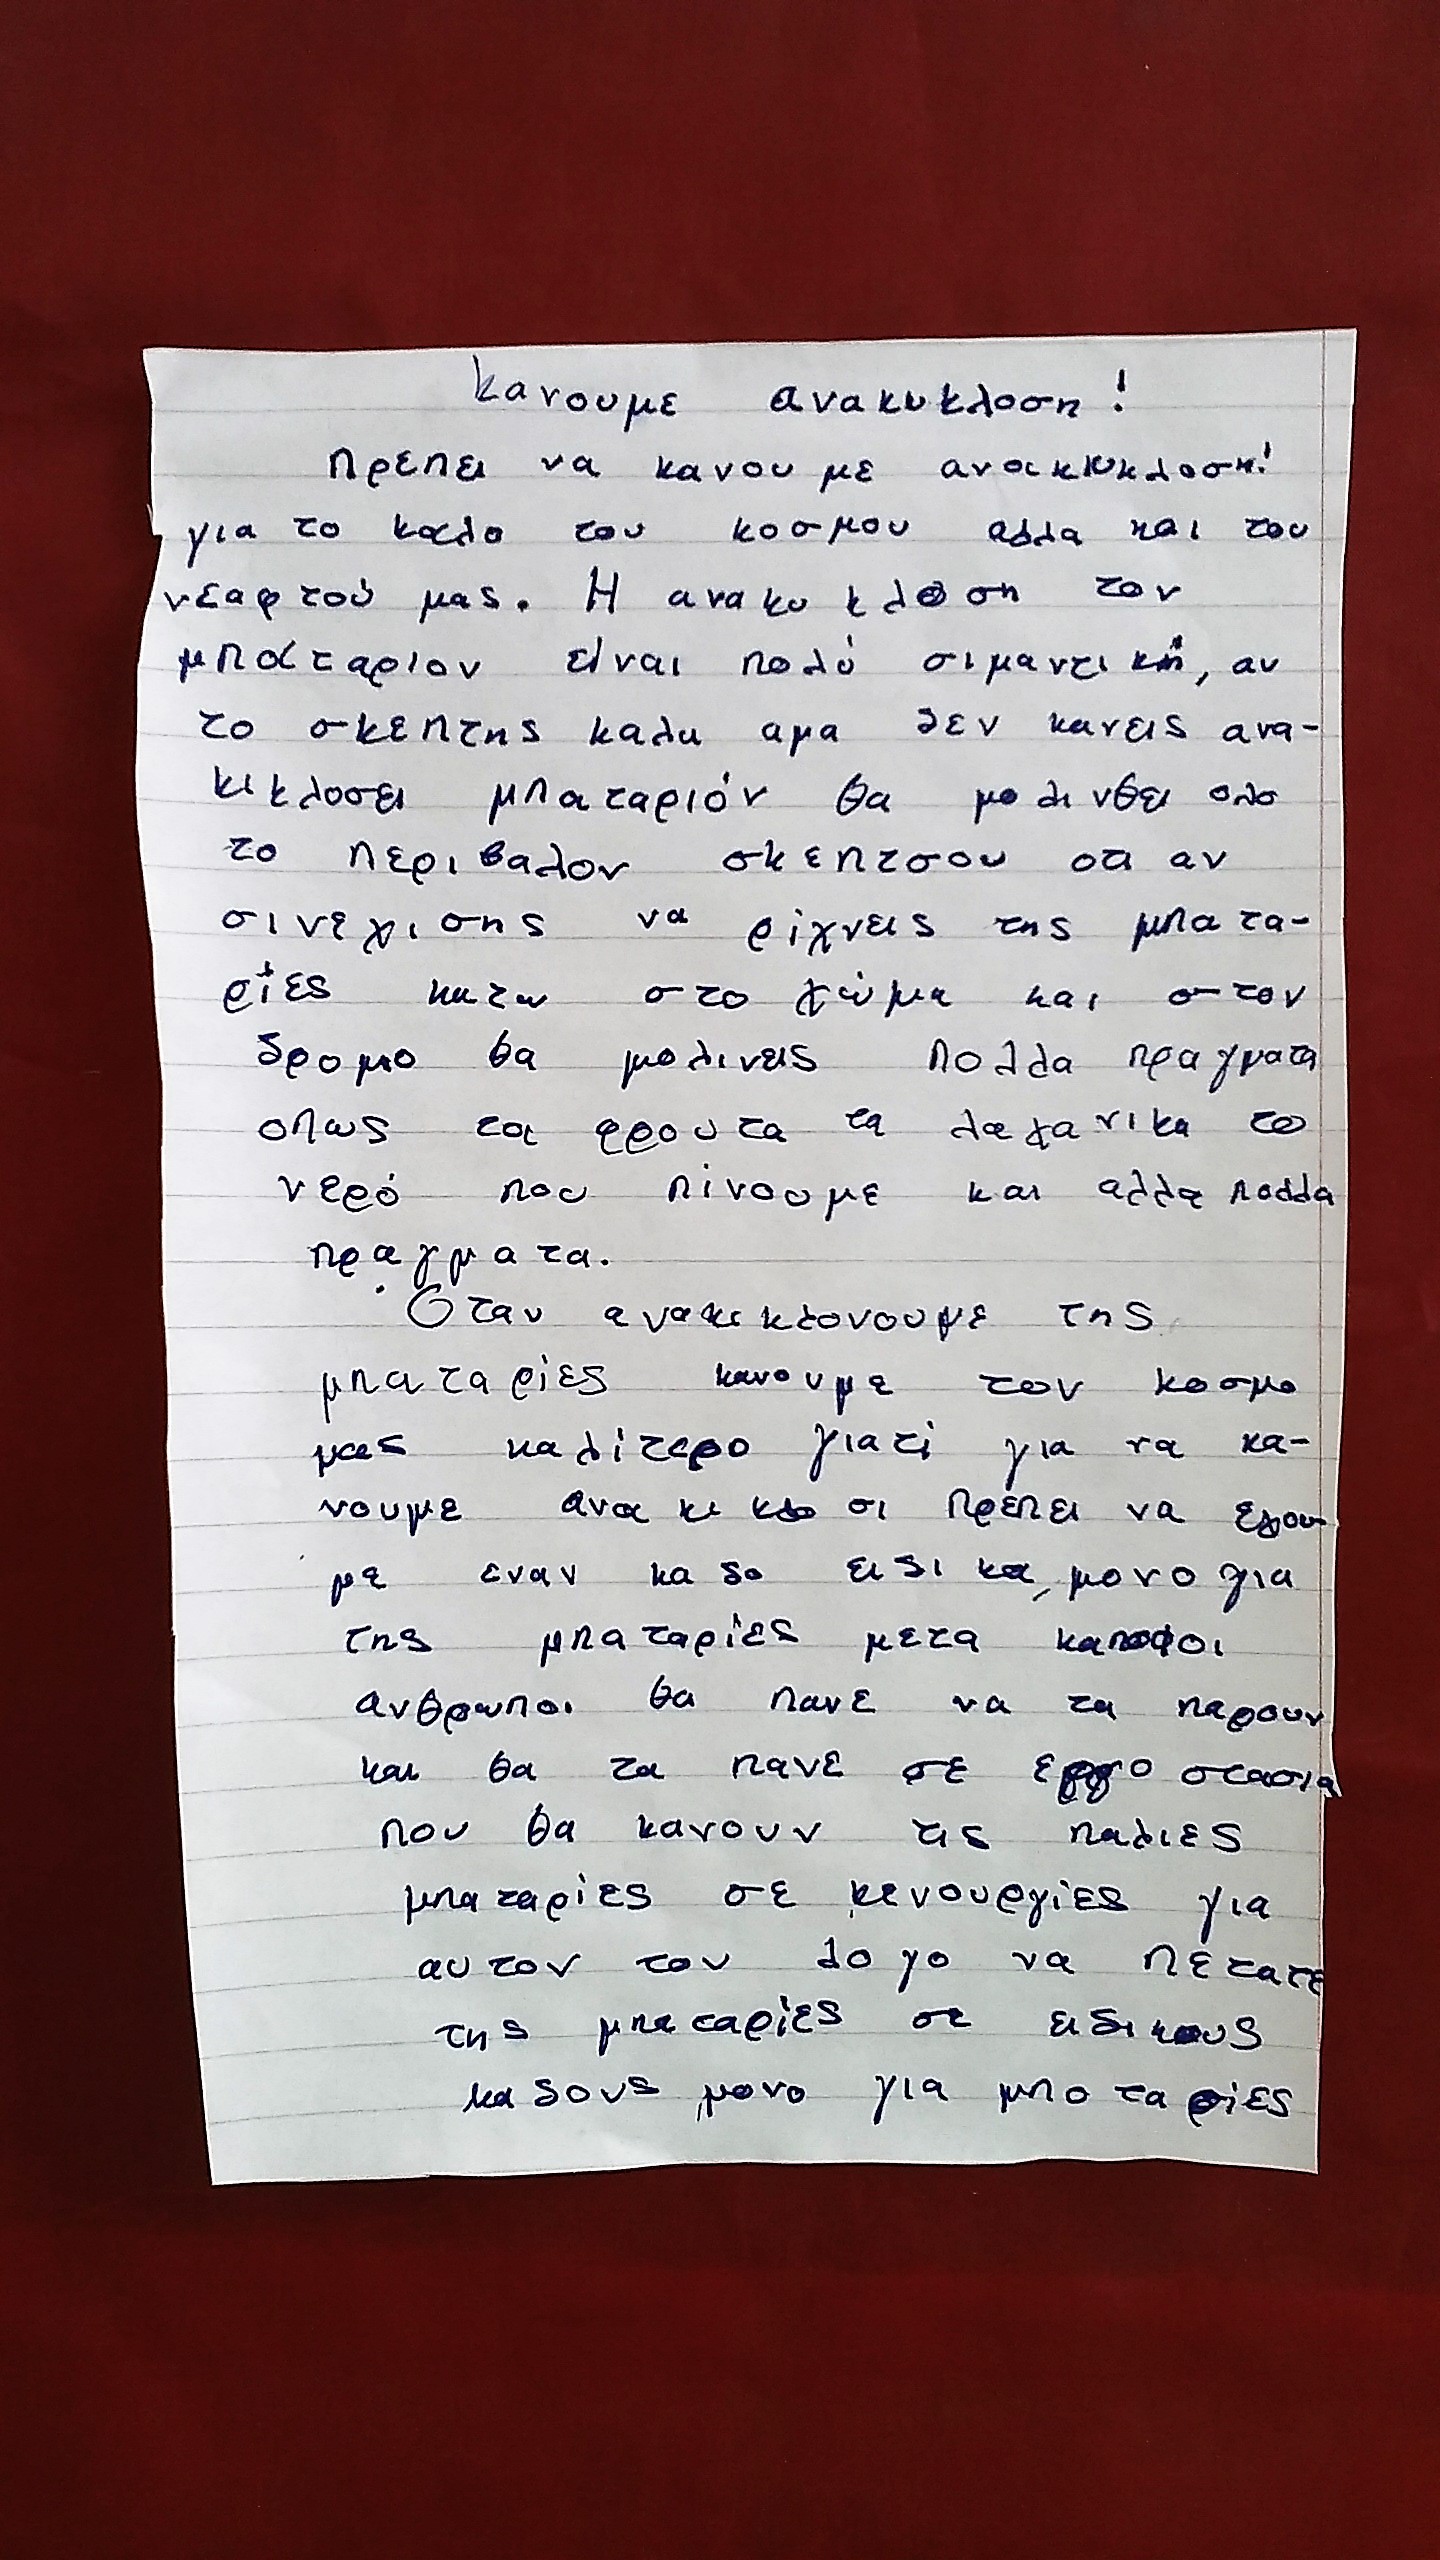 Κανουμε ανακυκλοση!
Πρεπει να κανουμε ανακυκλοση!
για το καλο του κοσμου αλλα και του
νεαφτού μας. Η ανακυκλοση τον
μπαταριον είναι πολύ σιμαντική, αν
το σκεπτης καλα αμα δεν κανεις ανα-
κικλοσει μπαταριόν θα μολινθει ολο
το περιβαλον σκεπτσου οτι αν
σινεχισης να ρίχνεις της μπατα-
ρίες κατω στο χώμα και στον
δρομο θα μολινεις πολλα πραγματα
οπως τα φρουτα τα λαχανικα το
νερό που πίνουμε και αλλα πολλα
πραγματα.
Οταν ανακικλονουμε της
μπαταρίες κανουμε τον κοσμο
μας καλίτερο γιατί για να κα-
νουμε ανακικλοσι πρεπει να εχου-
με εναν καδο ειδικα, μονο για
της μπαταρίες μετα
ανθρωποι θα πανε να τα παρουν
και θα τα πανε σε εργοστασια
που θα κανουν τις παλιες
μπαταρίες σε κενουργίες για
αυτον τον λογο να πετατε
της μπαταρίες σε ειδικους
καδους μονο για μποταρίες